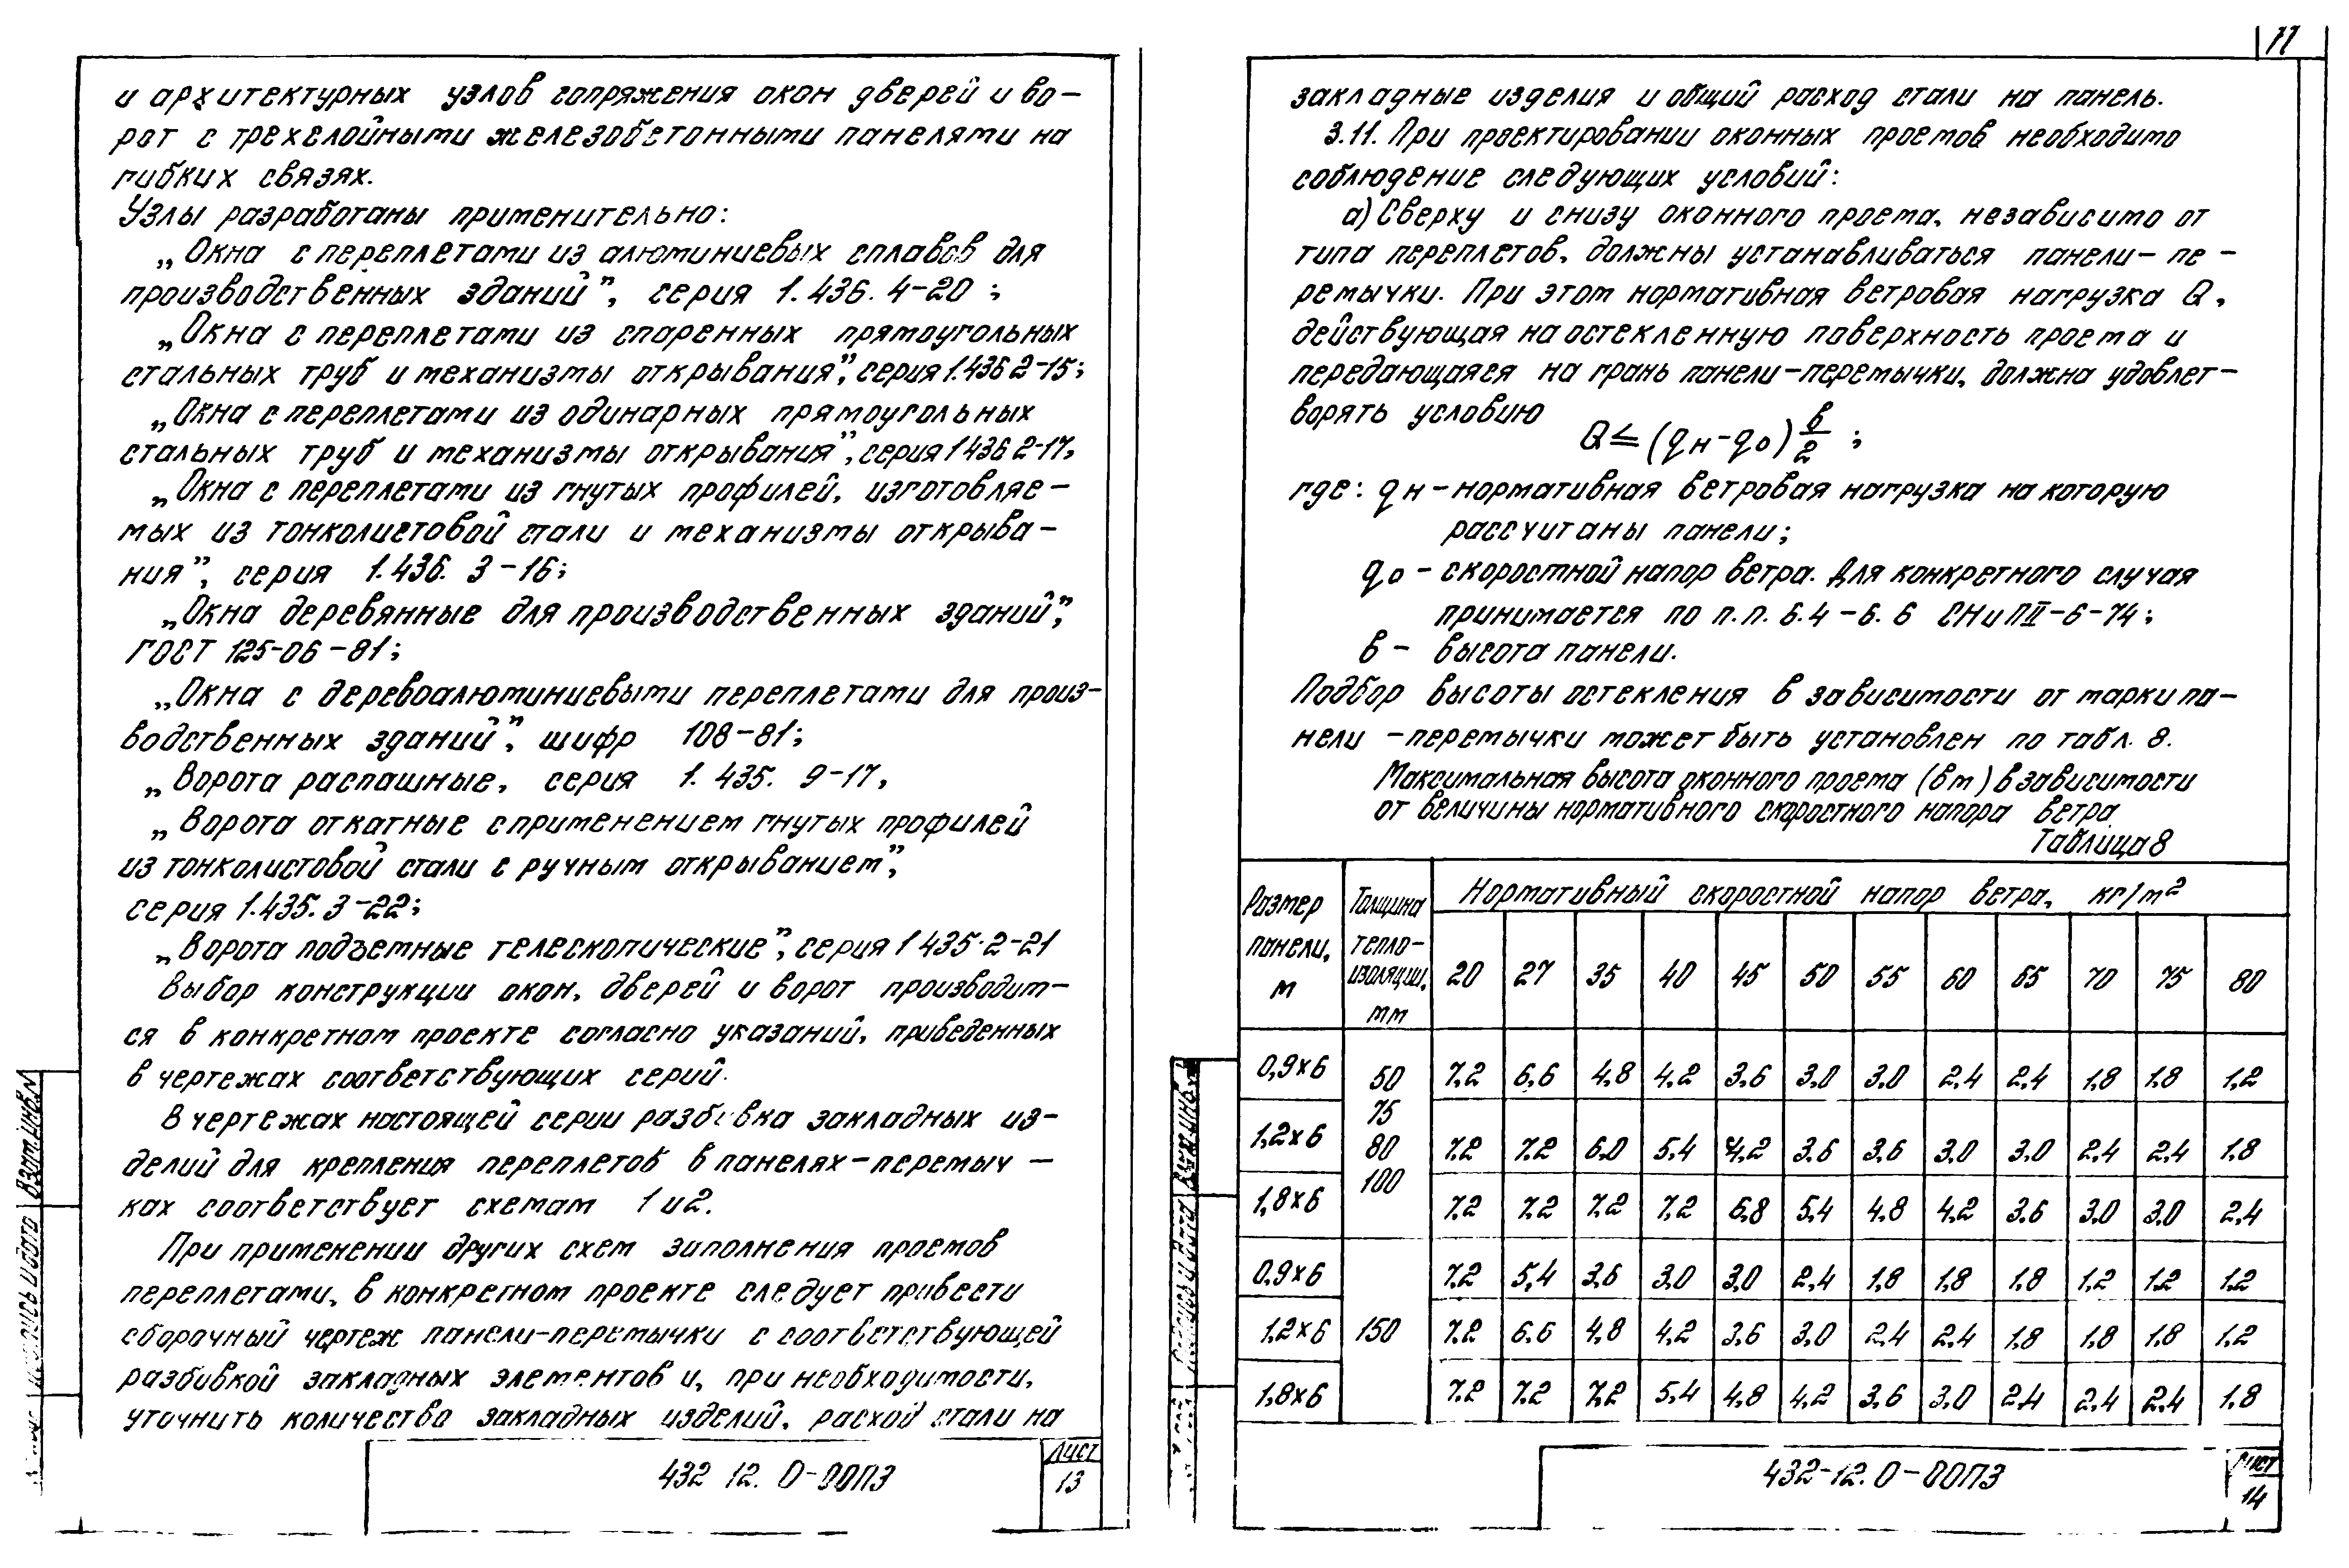 и архитектурных узлов сопряжения окон дверей и во-
рот с трехслойными железобетонными панелями на
гибких связях.
Узлы разработаны применительно:
„Окна с переплетами из алюминиевых сплавов для
производственных зданий", серия 1.436. 4-20 ;
„Окна с переплетами из спаренных прямоугольных
стальных труб и механизмы открывания", серия 1.436 2-15;
„Окна с переплетами из одинарных прямоугольных
стальных труб и механизмы открывания", серия 1 436 2-17,
„Окна с переплетами из гнутых профилей, изготовляе-
мых из тонколистовой стали и механизмы открыва-
ния", серия 1.436. 3-16;
„Окна деревянные для производственных зданий",
ГОСТ 125-06-81;
„Окна с деревоалюминиевыми переплетами для произ-
водственных зданий", шифр 108-81;
„Ворота распашные, серия 1. 435. 9-17,
„Ворота откатные с применением гнутых профилей
из тонколистовой стали с ручным открыванием",
серия 1.435. 3-22;
„Ворота подъемные телескопические", серия 1 435.2-21
Выбор конструкции окон, дверей и ворот производит-
ся в конкретном проекте согласно указаний, приведенных
в чертежах соответствующих серий.
В чертежах настоящей серии разбивка закладных из-
делий для крепления переплетов в панелях-перемыч-
ках соответствует схемам 1 и 2.
При применении других схем заполнения проемов
переплетами, в конкретном проекте следует привести
сборочный чертеж панели-перемычки с соответствующей
разбивкой закладных элементов и, при необходимости,
уточнить количество закладных изделий, расход стали на
432 12. 0-00ПЗ
Лист
13
Взам.инв.N
11
закладные изделия и общий расход стали на панель.
3.11. При проектировании оконных проемов необходимо
соблюдение следующих условий:
а) Сверху и снизу оконного проема, независимо от
типа переплетов, должны устанавливаться панели-пе-
ремычки. При этом нормативная ветровая нагрузка Q,
действующая на остекленную поверхность проема и
передающаяся на грань панели-перемычки, должна удовлет-
ворять условию
Q ≤ (qн-qо) в/2 ;
где: qн - нормативная ветровая нагрузка на которую
рассчитаны панели;
qо - скоростной напор ветра. Для конкретного случая
принимается по п.п. 6.4-6.6 СНиП II-6-74;
в - высота панели.
Подбор высоты остекления в зависимости от марки па-
нели-перемычки может быть установлен по табл. 8.
Максимальная высота оконного проема (в м) в зависимости
от величины нормативного скоростного напора ветра
Таблица 8
Размер панели, м Толщина теплоизоляции, мм Нормативный скоростной напор ветра, кг/м²
20 27 35 40 45 50 55 60 65 70 75 80
0,9х6 50 7,2 6,6 4,8 4,2 3,6 3,0 3,0 2,4 2,4 1,8 1,8 1,2
75
1,2х6 80 7,2 7,2 6,0 5,4 4,2 3,6 3,6 3,0 3,0 2,4 2,4 1,8
100
1,8х6 7,2 7,2 7,2 7,2 6,8 5,4 4,8 4,2 3,6 3,0 3,0 2,4
0,9х6 7,2 5,4 3,6 3,0 3,0 2,4 1,8 1,8 1,8 1,2 1,2 1,2
1,2х6 150 7,2 6,6 4,8 4,2 3,6 3,0 2,4 2,4 1,8 1,8 1,8 1,2
1,8х6 7,2 7,2 7,2 5,4 4,8 4,2 3,6 3,0 2,4 2,4 2,4 1,8
432-12. 0-00ПЗ
Лист
14